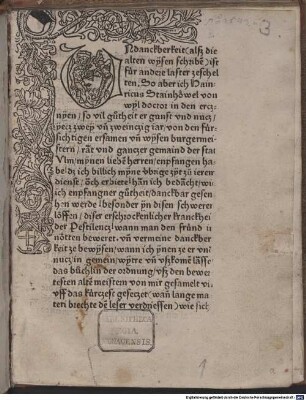 3
Undanckberkeit (alß die
alten wysen schribē) ist
für andere laster ze schel
ten, So aber ich Hain
ricus Stainhöwel von
wyl doctor in den ercz
nyen / so vil gůtheit er gunst vnd nucz /
yecz zwey vn̄ zweinczig iar, von den für
sichtigen ersamen vn̄ wysen burgermei
stern / rät vnd ganczer gemaind der stat
Vlm / mynen liebē herren / enpfangen ha
be di ich billich myne übrige zyt ze
dienst / ich bedächt / wi
ich enpfangner gůtheit danckbar gese
hen werde besonder yn disen schwerer
löffen / diser erschrockenlicher kranckhei
der Pestilencz / wann man den fründ in
nötten beweret, vn̄ vermeine danckber
keit ze bewysen / wann ich ynen ze er vn̄
nucz in gemein / wytre vn̄ vßkomē lasse
das büchlin der ordnung / vß den bewe
resten alten meistern von mir gesamelt vn
vff das kürczest geseczet / wan lange ma
teri brechte dē leser verdriessen) wie sich
BIBLIOTHECA
REGIA
MONACENSIS
1